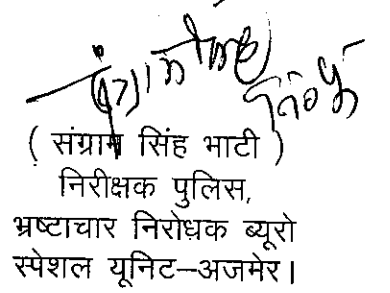 ( संग्राम सिंह भाटी )
निरीक्षक पुलिस,
भ्रष्टाचार निरोधक ब्यूरो
स्पेशल यूनिट–अजमेर।